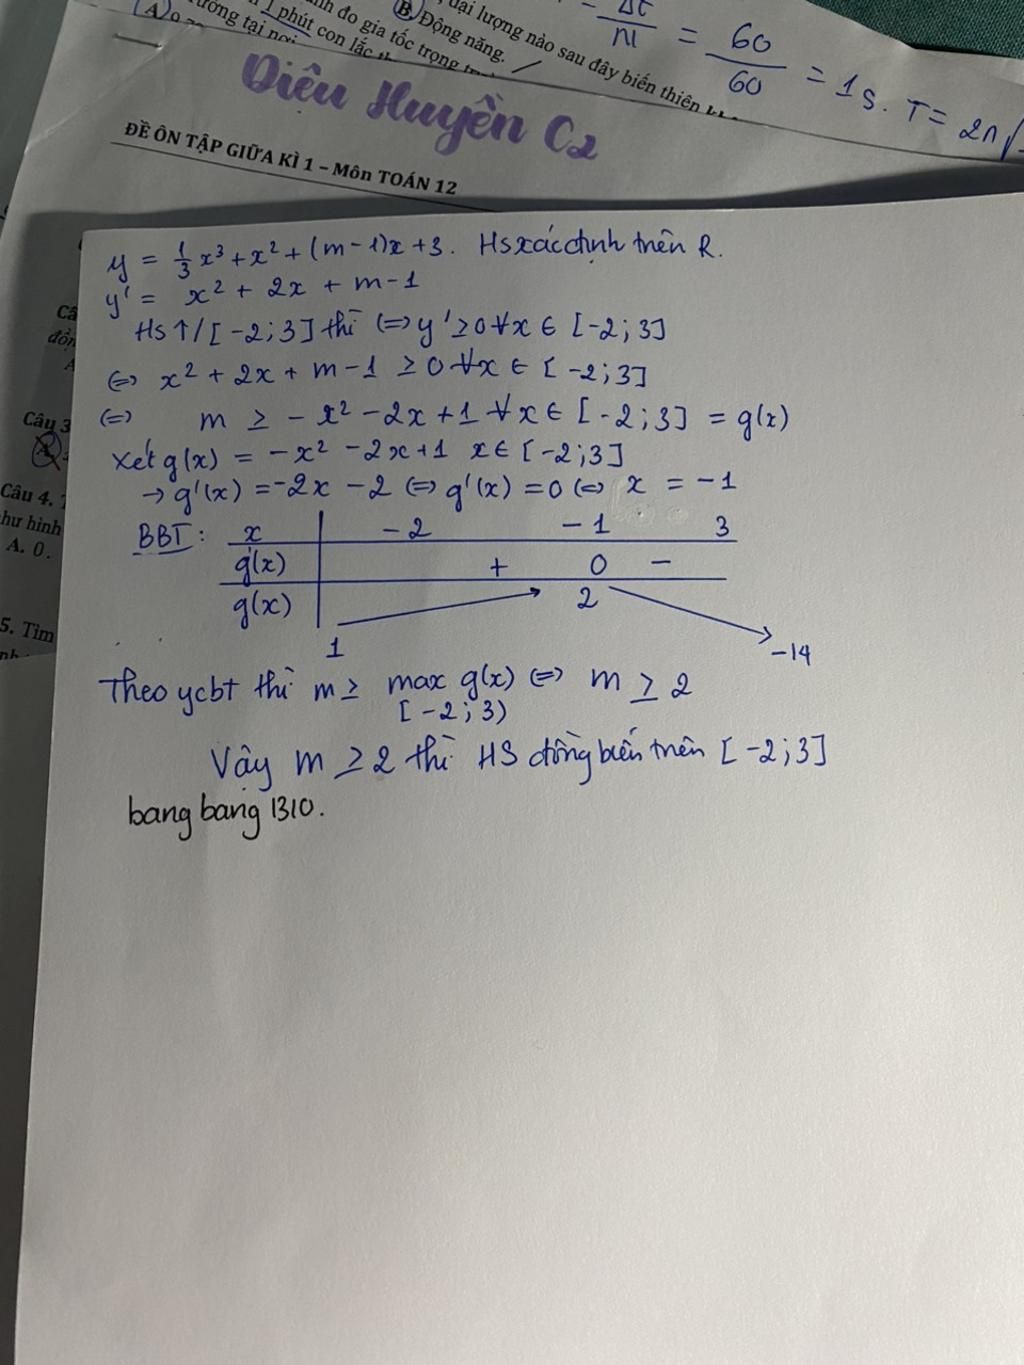 A
ường tại nơi
1 phút con lắc
đo gia tốc trọng
B. Động năng.
đại lượng nào sau đây biến thiên
= 60/60 = 1s. T = 2π√
Diêu Huyền C2
ĐỀ ÔN TẬP GIỮA KÌ 1 – Môn TOÁN 12
Câu 3
Câu 4.
hư hình
A. 0.
5. Tìm
y = 1/3 x³ + x² + (m - 1)x + 3. Hs xác định trên R.
y' = x² + 2x + m - 1
Hs ↑/[-2;3] thì (=) y' ≥ 0 ∀x ∈ [-2;3]
(=) x² + 2x + m - 1 ≥ 0 ∀x ∈ [-2;3]
(=) m ≥ - x² - 2x + 1 ∀x ∈ [-2;3] = g(x)
Xét g(x) = -x² - 2x + 1 x ∈ [-2;3]
→ g'(x) = -2x - 2 (=) g'(x) = 0 (=) x = -1
BBT: x -2 -1 3
g'(x) + 0 -
g(x) 1 2 -14
Theo ycbt thì m ≥ max g(x) (=) m ≥ 2
[-2;3)
Vậy m ≥ 2 thì HS đồng biến trên [-2;3]
bang bang 1310.